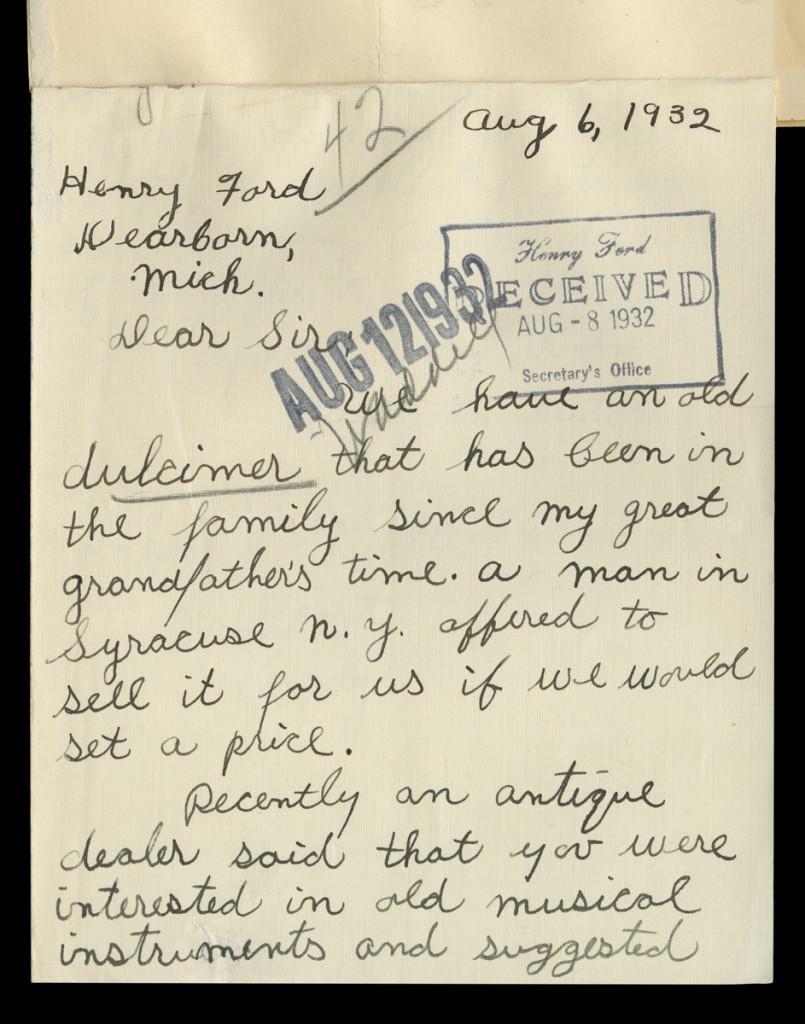 42
Aug 6, 1932
Henry Ford
Dearborn,
Mich.
Henry Ford
RECEIVED
AUG - 8 1932
Secretary's Office
AUG 12 1932
Waddell
Dear Sir,
We have an old
dulcimer that has been in
the family since my great
grandfather's time. A man in
Syracuse N. Y. offered to
sell it for us if we would
set a price.
Recently an antique
dealer said that you were
interested in old musical
instruments and suggested